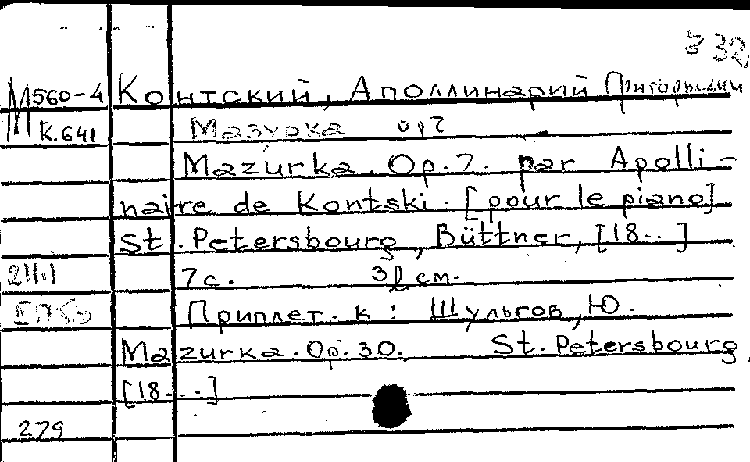 32
M560-4 Контский, Аполлинарий Григорьевич
К.641 Мазурка ор7
Mazurka. Op.7. par Apolli-
naire de Kontski. [pour le piano]
St.Petersbourg, Büttner, [18..]
7с. 32см.
Приплет. к: Шульгов, Ю.
Mazurka. Op.30. St.Petersbourg,
[18...]
279